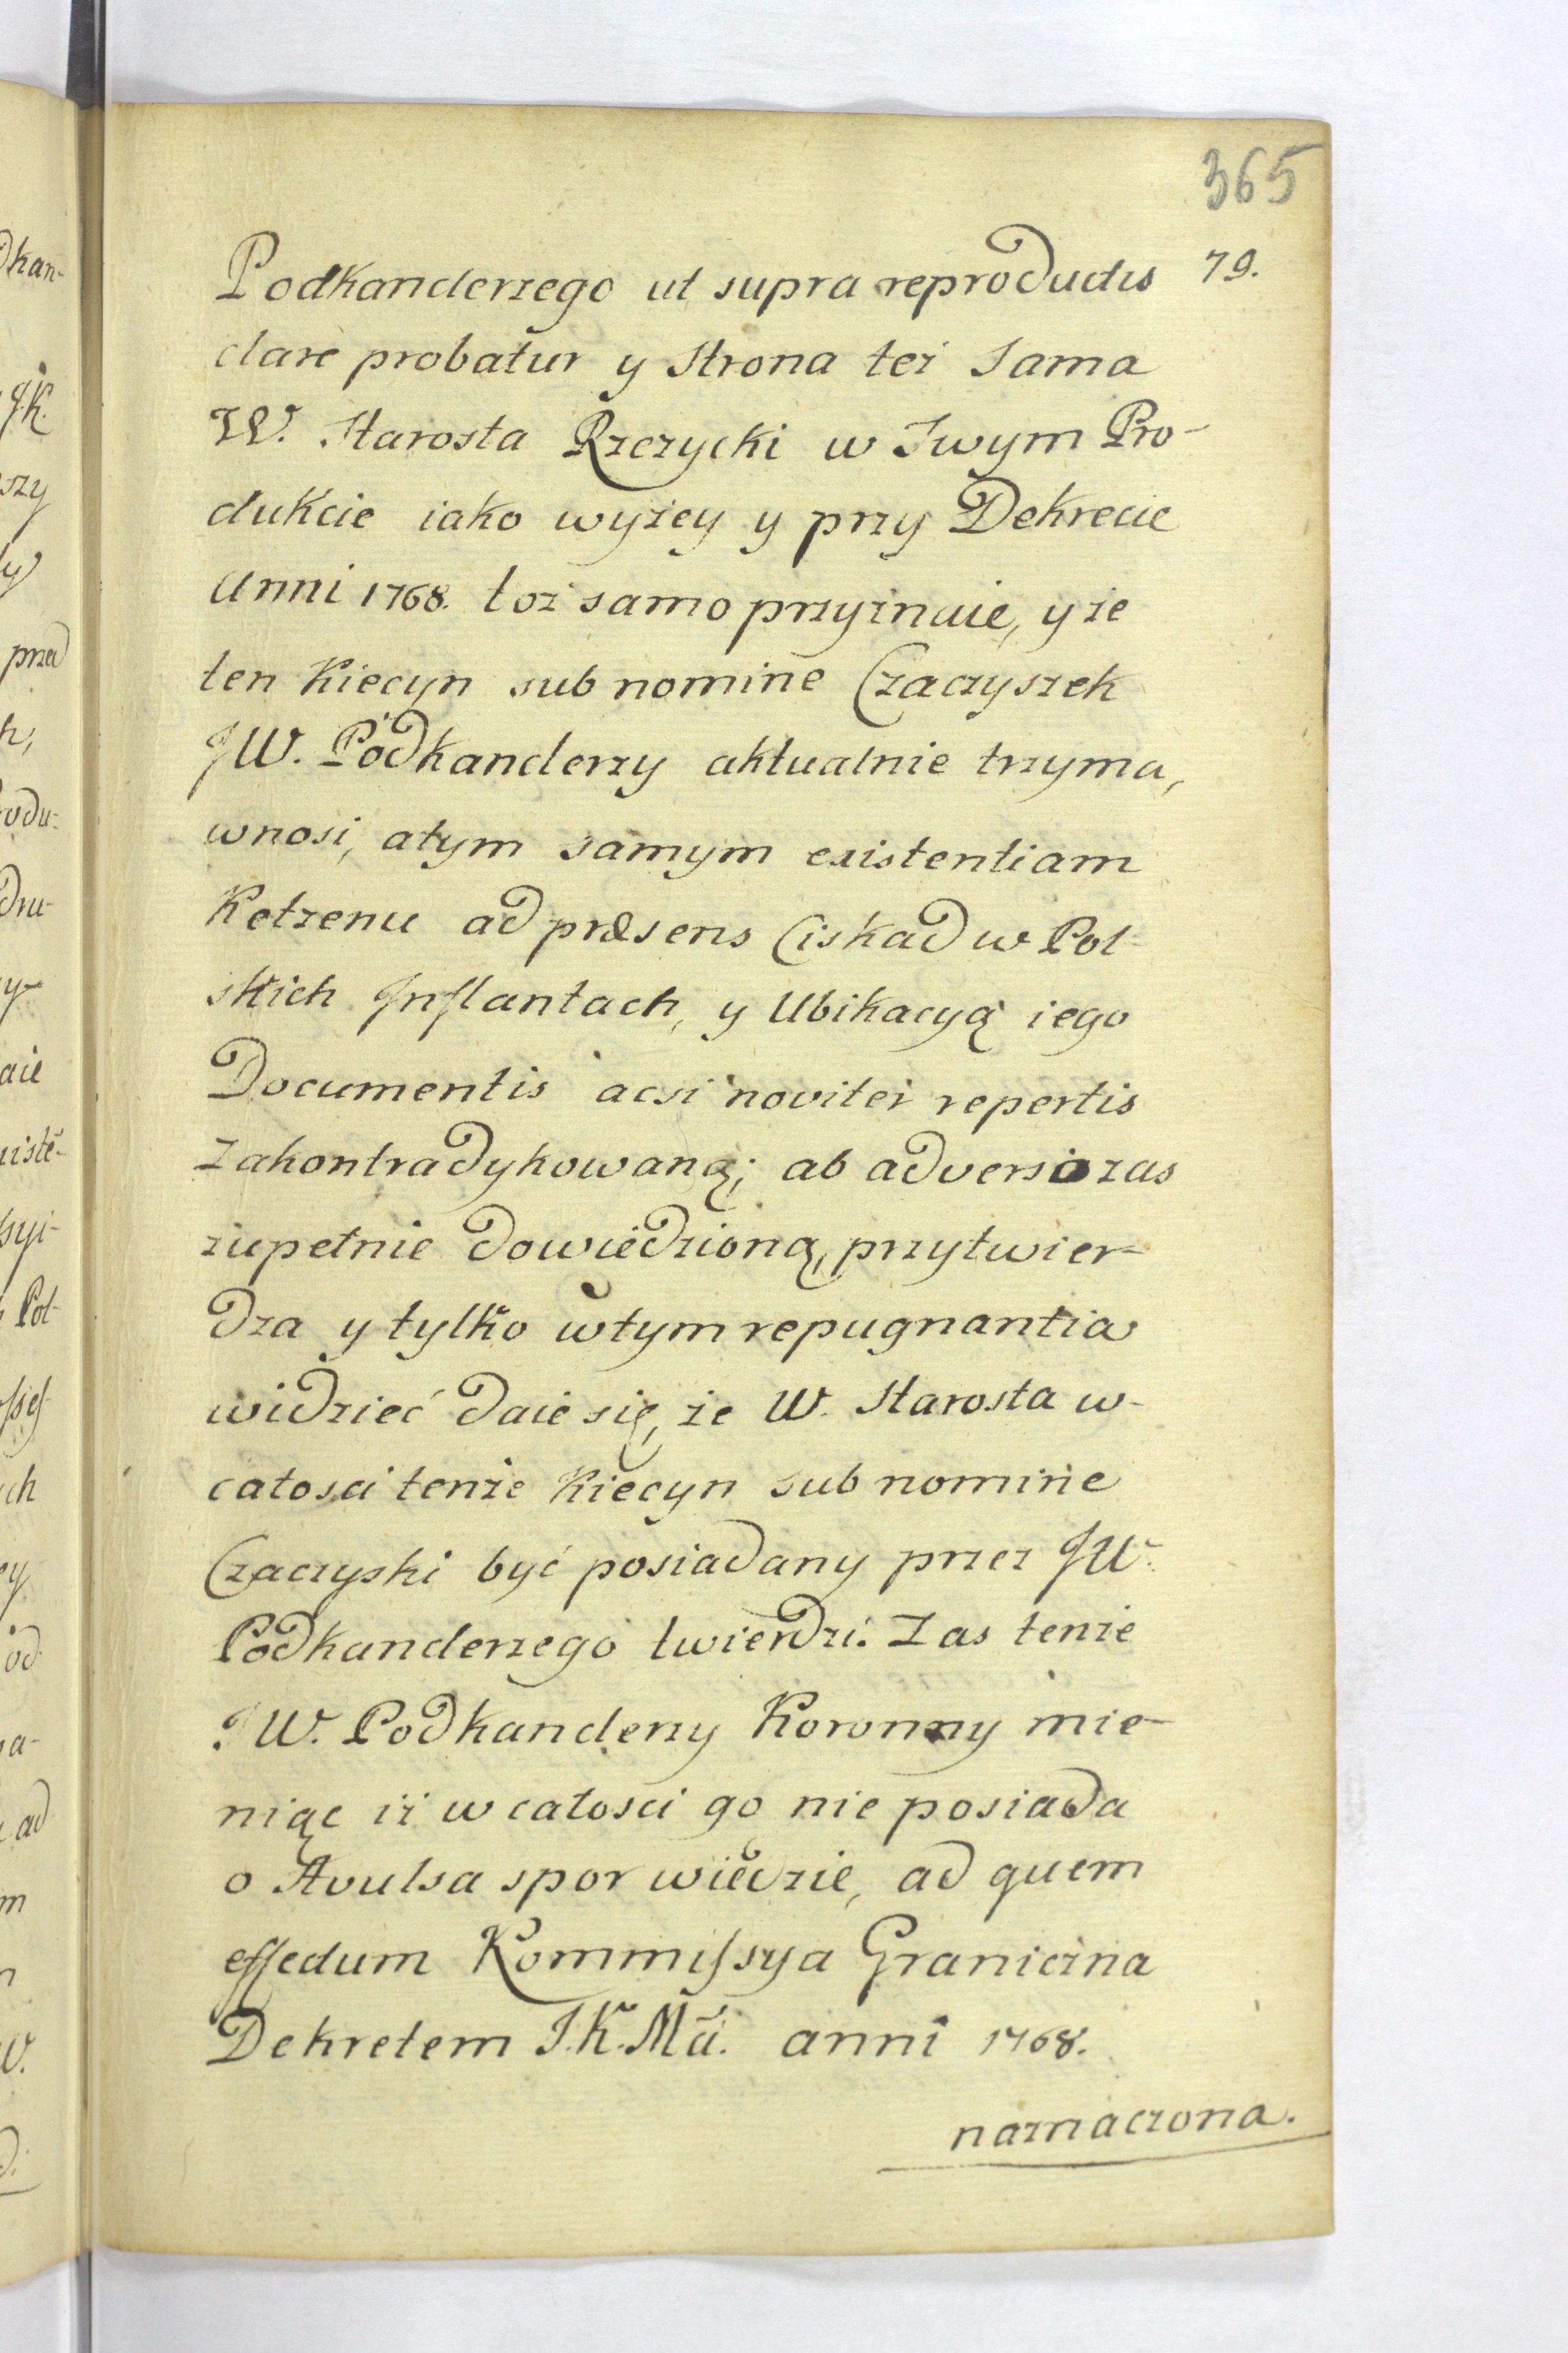 365
79.
Podkanclerzego ut supra reproductis
clare probatur y Strona też Sama
W. Starosta Rzczycki w Swym Pro-
dukcie iako wyżey y przy Dekrecie
Anni 1768. toż samo przyznaie, y że
ten Kiecyn sub nomine Czaczyszek
JW. Podkanclerzy aktualnie trzyma,
wnosi, atym samym existentiam
Ketzenu ad præsens Ciskad w Pol-
skich Inflantach, y Ubikacyą iego
Documentis acsi noviter repertis
Zakontradykowaną; ab adverso zas
zupełnie dowiedzioną, przytwier-
dza y tylko wtym repugnantia
widzieć daie się, że W. Starosta w-
całosci tenże Kiecyn sub nomine
Czaczyski być posiadany przez JW.
Podkanclerzego twierdzi. Zas tenże
JW. Podkanclerzy Koronny mie-
niąc iż w całosci go nie posiada
o Avulsa spor wiedzie, ad quem
effectum Kommissya Graniczna
Dekretem J.K.Mci. anni 1768.
naznaczona.